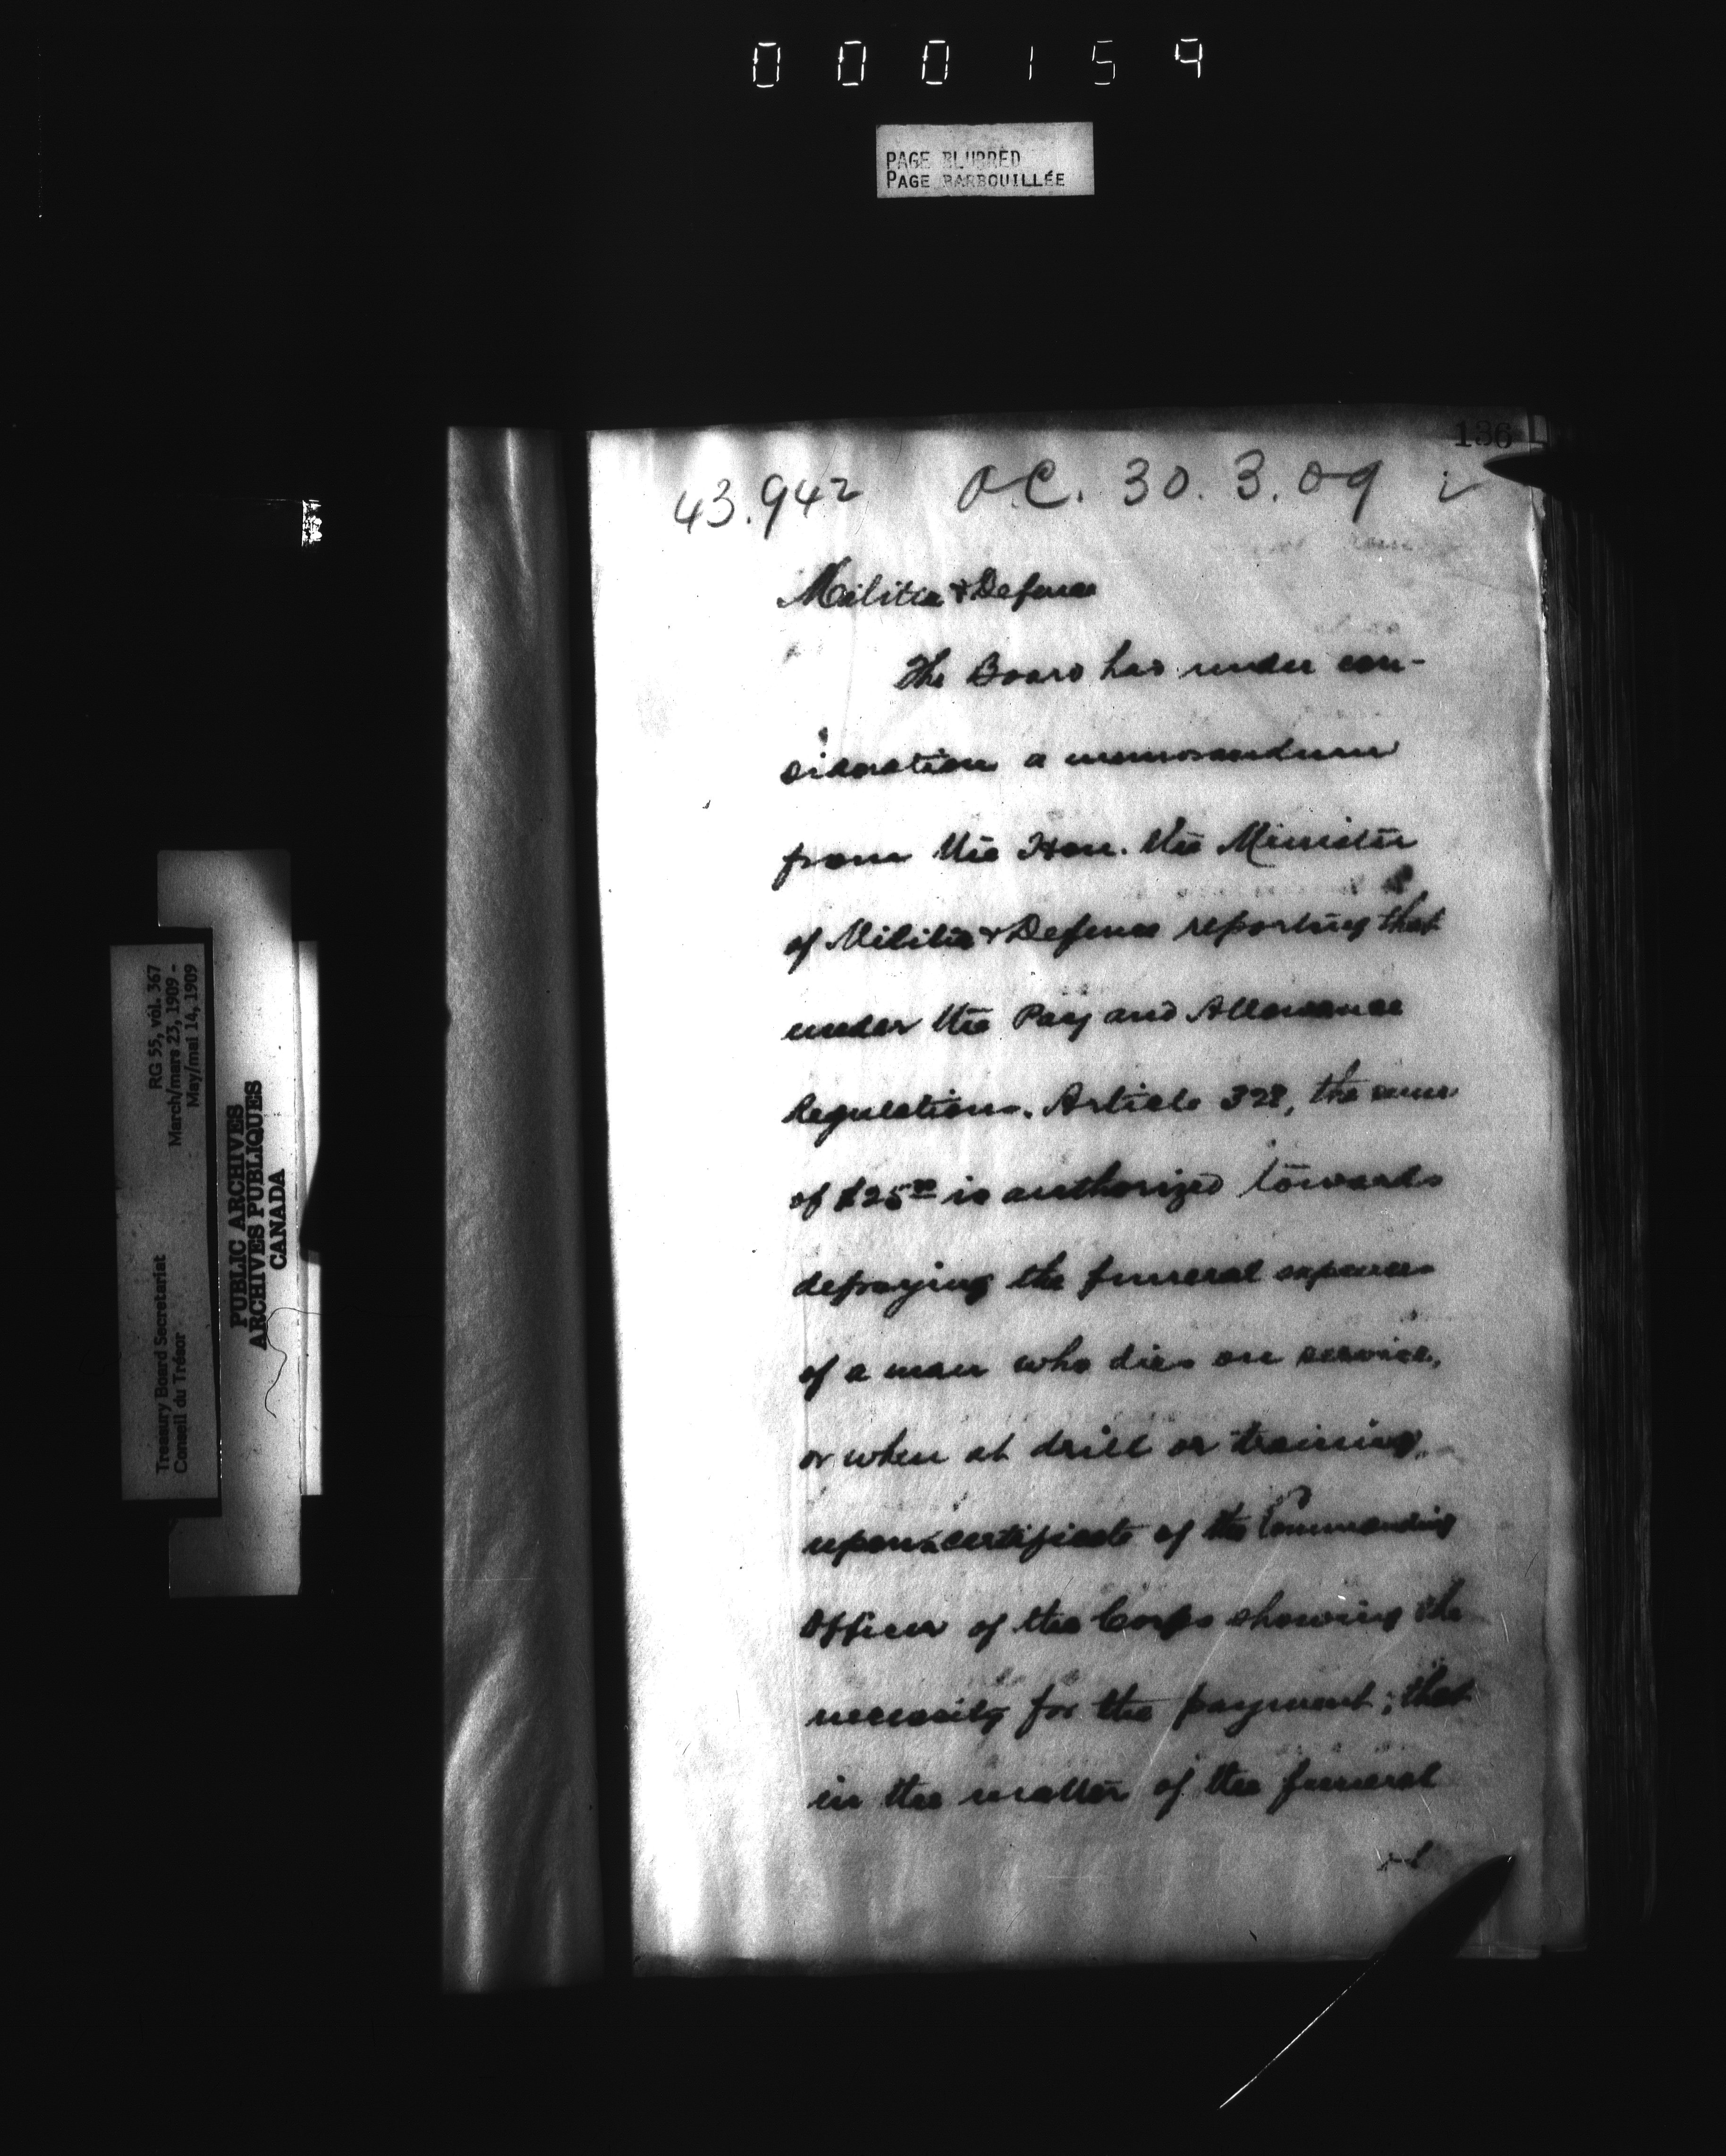 000159
PAGE BLURRED
PAGE BARBOUILLÉE
136
43.942 O.C. 30.3.09
Militia & Defence
The Board has under con-
sideration a memorandum
from the Hon. the Minister
of Militia & Defence reporting that
under the Pay and Allowance
Regulations. Article 328, the sum
of $25.00 is authorized towards
defraying the funeral expenses
of a man who dies on service,
or when at drill or training,
upon a certificate of the Commanding
Officer of the Corps showing the
necessity for the payment; that
in the matter of the funeral
RG 55, vol. 367
March/mars 23, 1909 -
May/mai 14, 1909
Treasury Board Secretariat
Conseil du Trésor
PUBLIC ARCHIVES
ARCHIVES PUBLIQUES
CANADA